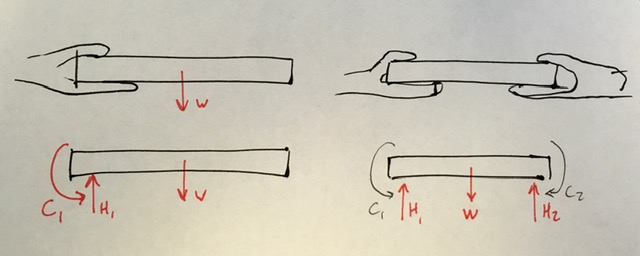 W
C₁ H₁ W
C₁ H₁ W H₂ C₂